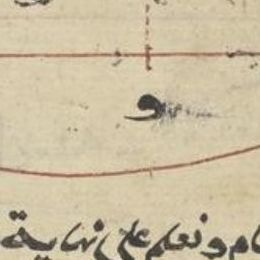 و
ونعلم على نهاية